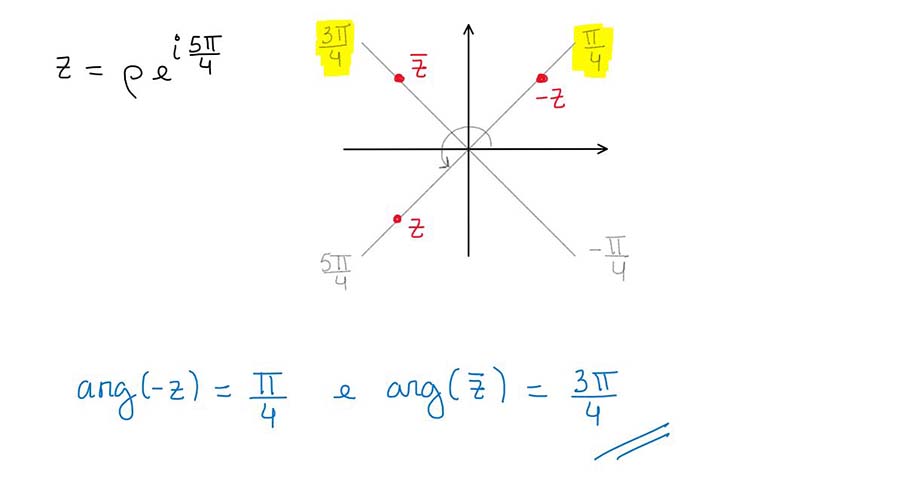 z = ρe^{i 5π/4}
3π/4
z̄
π/4
-z
z
5π/4
-π/4
arg(-z) = π/4 e arg(z̄) = 3π/4